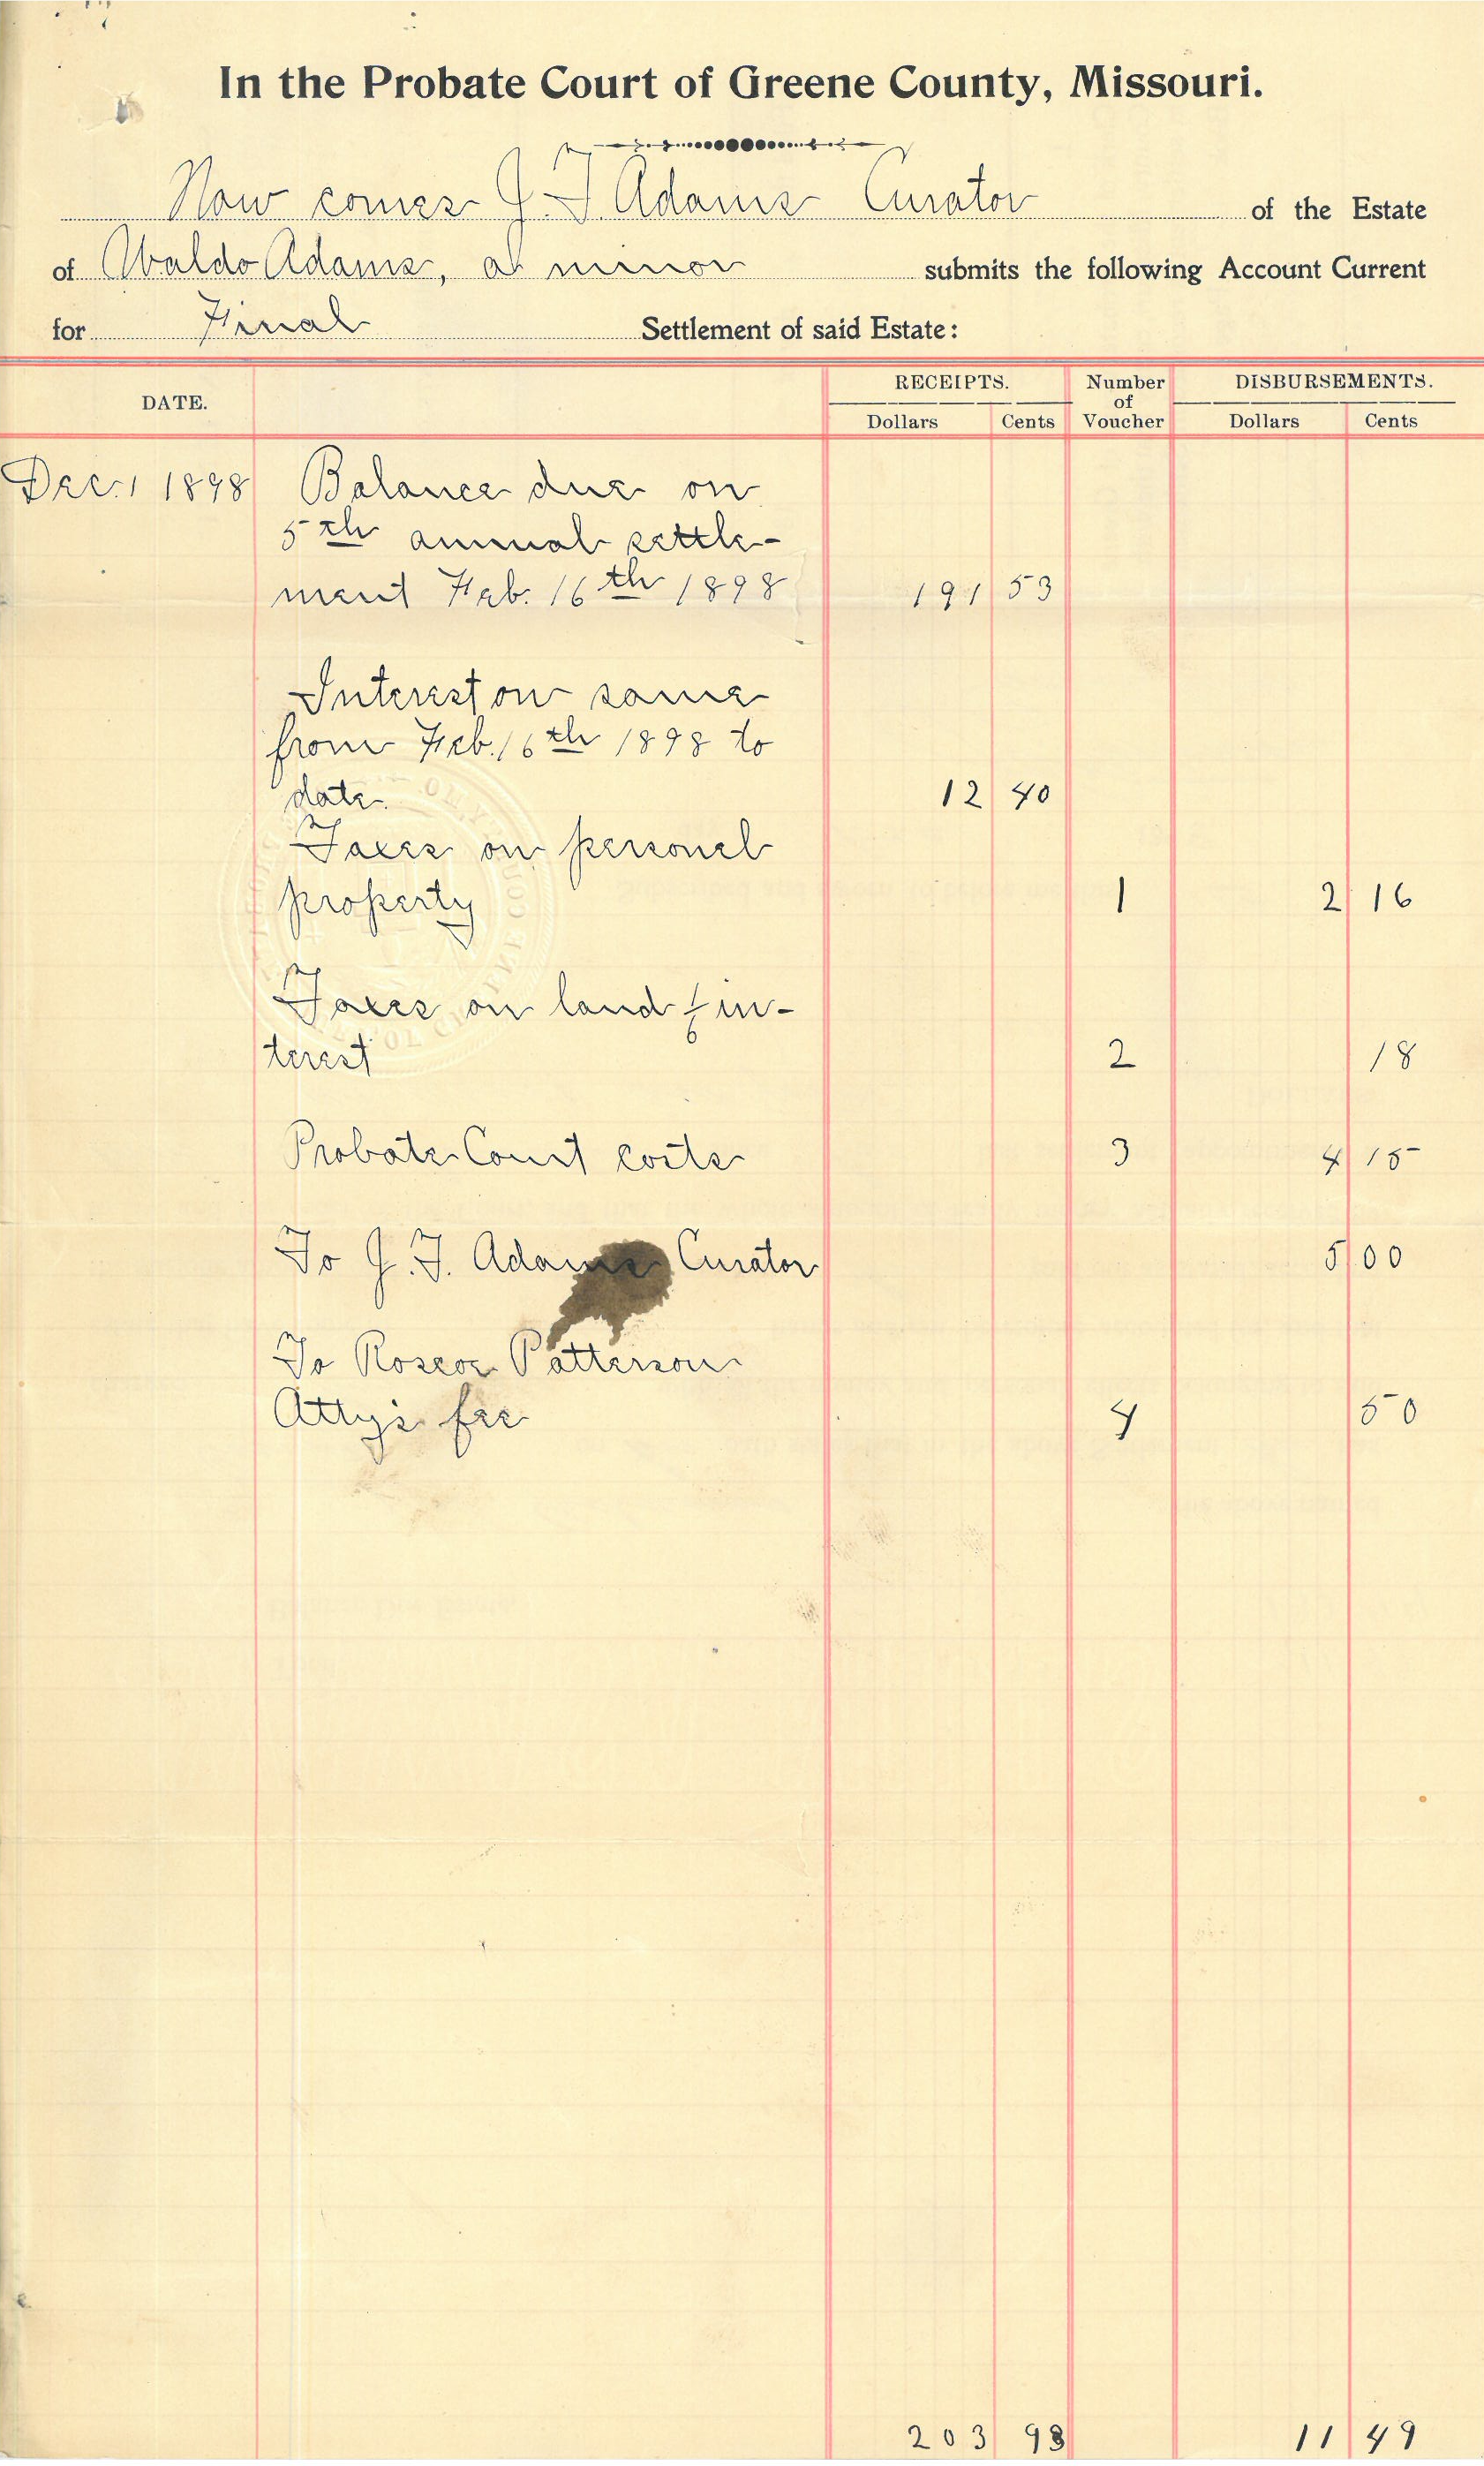 In the Probate Court of Greene County, Missouri.
Now comes J. T. Adams Curator of the Estate
of Waldo Adams, a minor submits the following Account Current
for Final Settlement of said Estate:
DATE. RECEIPTS. Number of Voucher DISBURSEMENTS.
Dollars Cents Dollars Cents
Dec. 1 1898 Balance due on
5th annual settle-
ment Feb. 16th 1898 191 53
Interest on same
from Feb. 16th 1898 to
date. 12 40
Taxes on personal
property 1 2 16
Taxes on land 1/6 in-
terest 2 18
Probate Court costs 3 4 15
To J. T. Adams Curator 5 00
To Roscoe Patterson
Atty's fee 4 50
203 93 11 49